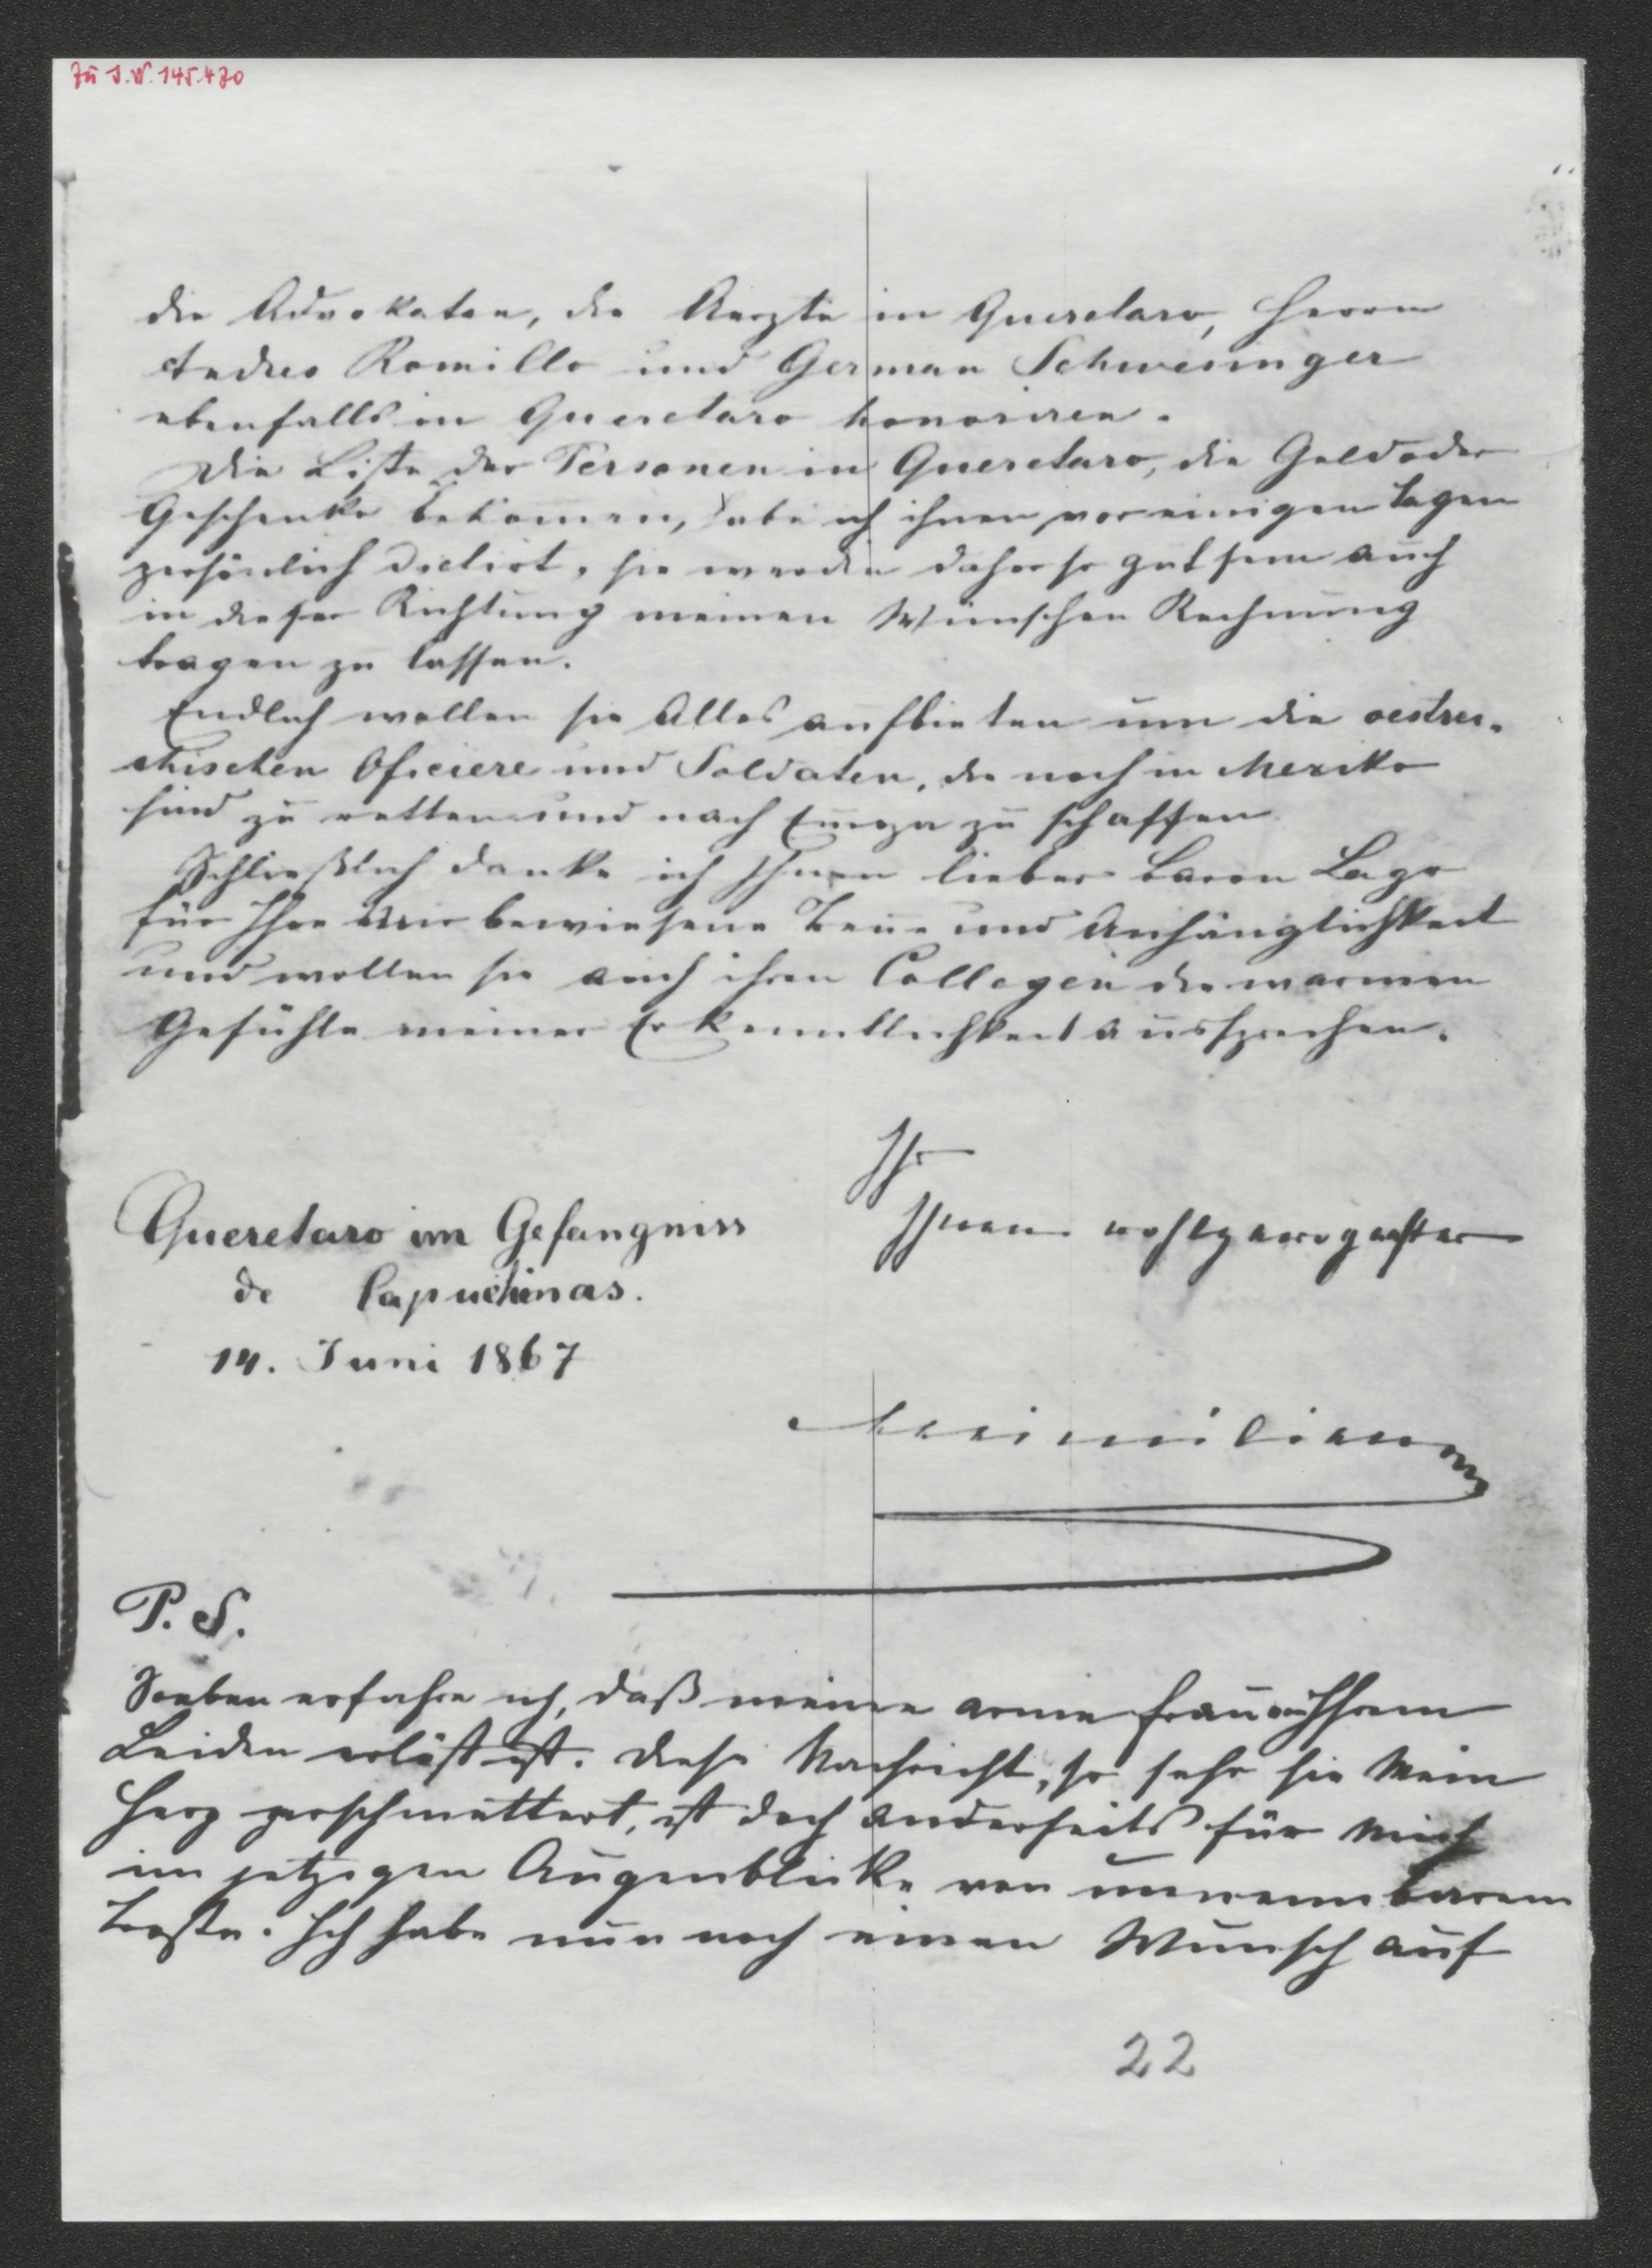 Zu I.N. 145.470
die Advokaten, die Aerzte in Queretaro, Herrn
Andres Romillo und German Schwesinger
ebenfalls in Queretaro honoriren.
Die Liste der Personen in Queretaro, die Geld oder
Geschenke bekommen, habe ich ihnen vor einigen Tagen
persönlich dictirt, sie werden daher so gut sein auch
in dieser Richtung meinen Wünschen Rechnung
tragen zu lassen.
Endlich wollen sie Alles aufbieten um die oestrei-
chischen Oficiere und Soldaten, die noch in Mexiko
sind zu retten und nach Europa zu schaffen
Schließlich danke ich Ihnen lieber Baron Lago
für Ihre Mir bewiesene Treue und Anhänglichkeit
und wollen sie auch ihren Collegen die warmen
Gefühle meiner Erkenntlichkeit aussprechen.
Ihr
Ihnen wohlgewogenster
Queretaro im Gefängniss
de Capuchinas.
14. Juni 1867
Maximilian
P. S.
Soeben erfahre ich, daß meine arme Frau Ihrem
Leiden erlöst ist. Diese Nachricht, so sehr sie Mein
Herz zerschmettert, ist doch anderseits für Mich
im jetzigen Augenblicke von unnennbarem
Troste. Ich habe nun noch einen Wunsch auf
22